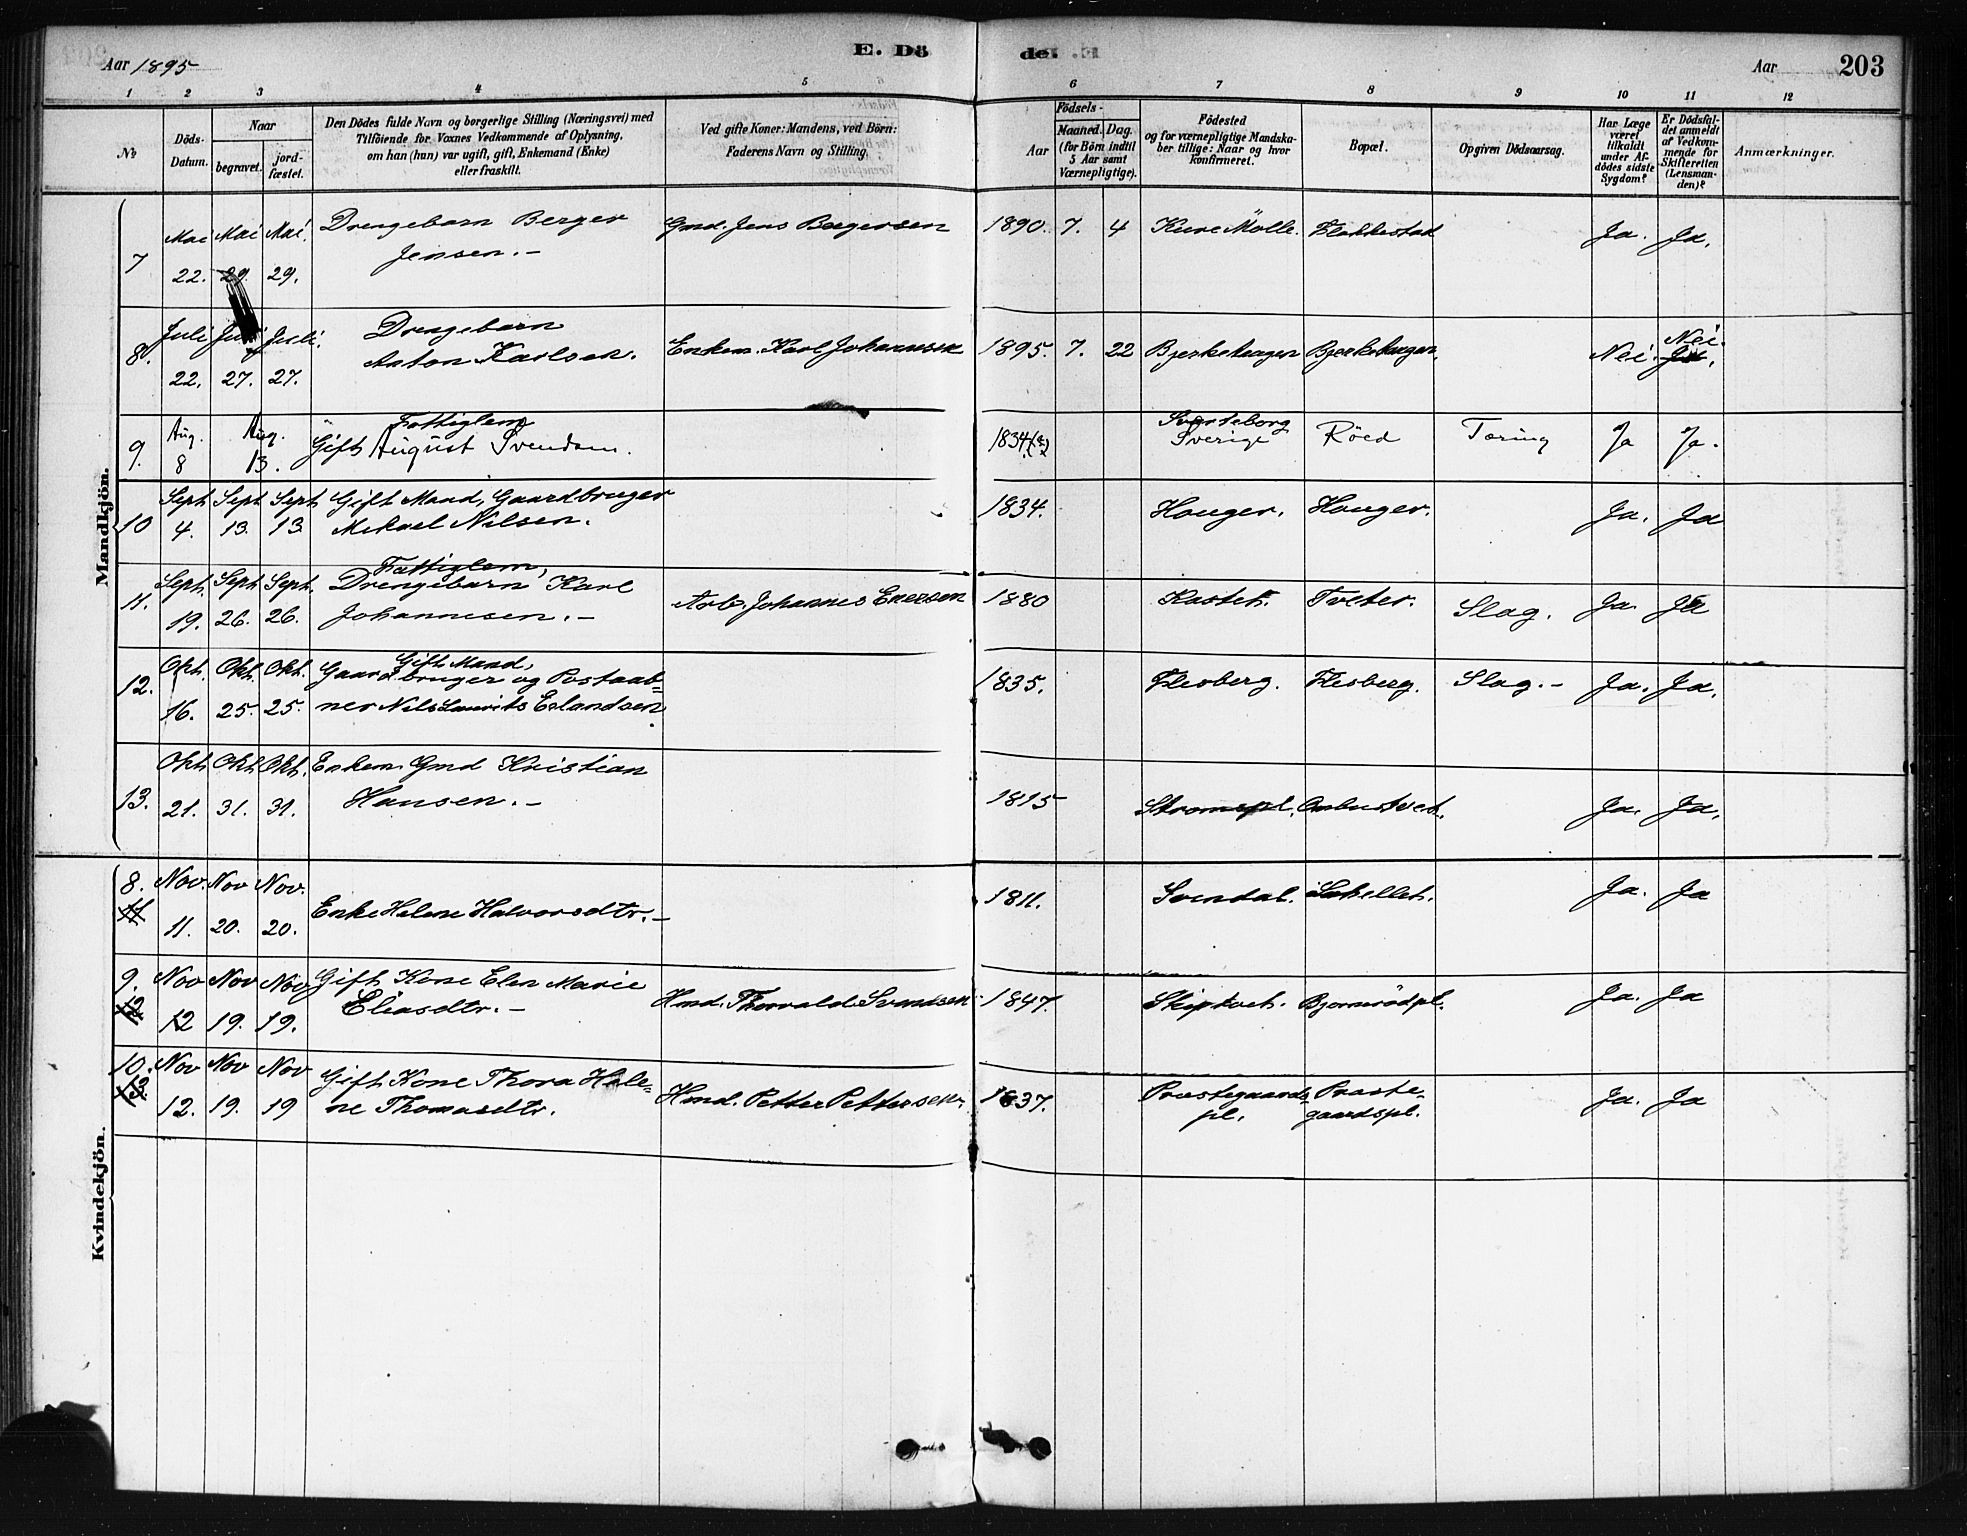 Aar 1895
E. Dö
de.
Aar
203
1 2 3 4 5 6 7 8 9 10 11 12
No
Döds-
Datum.
Naar
begravet.
jord-
fæstet.
Den Dödes fulde Navn og borgerlige Stilling (Næringsvei) med
Tilföiende for Voxnes Vedkommende af Oplysning,
om han (hun) var ugift, gift, Enkemand (Enke)
eller fraskilt.
Ved gifte Koner: Mandens, ved Börn:
Faderens Navn og Stilling.
Födsels-
Aar
Maaned.
Dag.
(for Börn indtil
5 Aar samt
Værnepligtige).
Födested
og for værnepligtige Mandska-
ber tillige: Naar og hvor
konfirmeret.
Bopæl.
Opgiven Dödsaarsag.
Har Læge
været
tilkaldt
under Af-
dödes sidste
Sygdom?
Er Dödsfal-
det anmeldt
af Vedkom-
mende for
Skifteretten
(Lensman-
den)?
Anmærkninger.
Mandkjön.
7 Mai 22. Mai 29. Mai. 29. Drengebarn Berger
Jensen. –
Gmd. Jens Bergersen 1890. 7. 4 Kure Mölle. Flakkestad Ja. Ja.
8. Juli 22. Juli 27. Juli. 27. Drengebarn
Anton Karlsen.
Enkem. Karl Johannesen 1895. 7. 22 Bjerkehagen Bjerkehagen. Nei. Nei. Ja.
9. Aug. 8 Aug. 13. Fattiglem
Gift August Svendsen.
1834(?) Svarteborg
Sverige Röed Tæring Ja Ja.
10 Sept 4. Sept 13. Sept 13 Gift Mand, Gaardbruger
Mikael Nilsen.
1834. Houger. Houger. Ja. Ja
11. Sept. 19. Sept 26. Sept. 26. Fattiglem,
Drengebarn Karl
Johannesen. –
Arb. Johannes Enersen 1880 Kasteh. Tveter. Slag. Ja. Ja
12. Okt. 16. Okt. 25. Okt. 25. Gift Mand,
Gaardbruger og Postaab=
ner Nils Laurits Erlandsen.
1835. Flesberg. Flesberg. Slag. – Ja. Ja.
13. Okt 21. Okt 31. Okt. 31. Enkem. Gmd Kristian
Hansen. –
1815 Ja. Ja.
Kvindekjön.
8. 11 Nov. 11. Nov 20. Nov. 20. Enke Helene Halvorsdtr. –
1811. Svendal. Ja. Ja
9. 12 Nov 12 Nov 19. Nov 19. Gift Kone Elen Marie
Eliasdtr. –
Hmd. Thorvald Svendsen 1847. Skiptvet. Bjørnerödpl. Ja. Ja
10. 13. Nov 12. Nov 19. Nov 19 Gift Kone Thora Hele=
ne Thomasdtr.
Hmd. Petter Pettersen. 1837. Præstegaards-
pl. Præste-
gaardspl. Ja. Ja